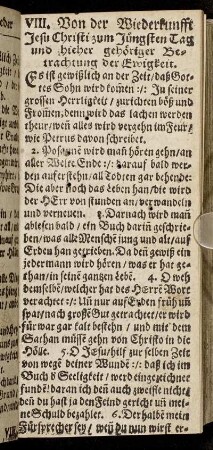 VIII. Von der Wiederkunfft
Jesu Christi zum Jüngsten Tag
und hieher gehöriger Be-
trachtung der Ewigkeit.
Es ist gewißlich an der Zeit/ daß Got-
tes Sohn wird kom̄en :/: In seiner
grossen Herrligkeit / zurichten böß und
From̄en; denn wird das lachen werden
theur/ weñ alles wird vergehn im Feur/
wie Petrus davon schreibet.
2. Posaunē wird mañ hören gehn/ an
aller Welte Ende :/: darauf bald wer-
den auferstehn/ all Todten gar behende:
Die aber noch das Leben han/ die wird
der HErr von stunden an/ verwandeln
und verneuen. 3. Darnach wird mañ
ablesen bald / ein Buch dariñ geschrie-
ben/ was alle Menschē jung und alt/ auf
Erden han getrieben. Da deñ gewiß ein
jedermann wird hören / was er hat ge-
than/ in seinē gantzen Lebē. 4. O weh
demselbē/ welcher hat des Herrē Wort
verrachtet :/: Uñ nur auf Erden früh uñ
spat/ nach großē Gut getrachtet/ er wird
für war gar kalt bestehn / und mit dē
Sathan müssē gehn von Christo in die
Hölle. 5. O Jesu/ hilf zur selben Zeit
von wegē deiner Wundē :/: daß ich im
Buch d Seeligkeit / werd eingezeichnet
fundē: daran ich deñ auch zweifle nicht/
den du hast ja den Feind gericht/ uñ mei-
ne Schuld bezahlet. 6. Derhalbē mein
Fürsprecher sey / weñ du nun wirst er-